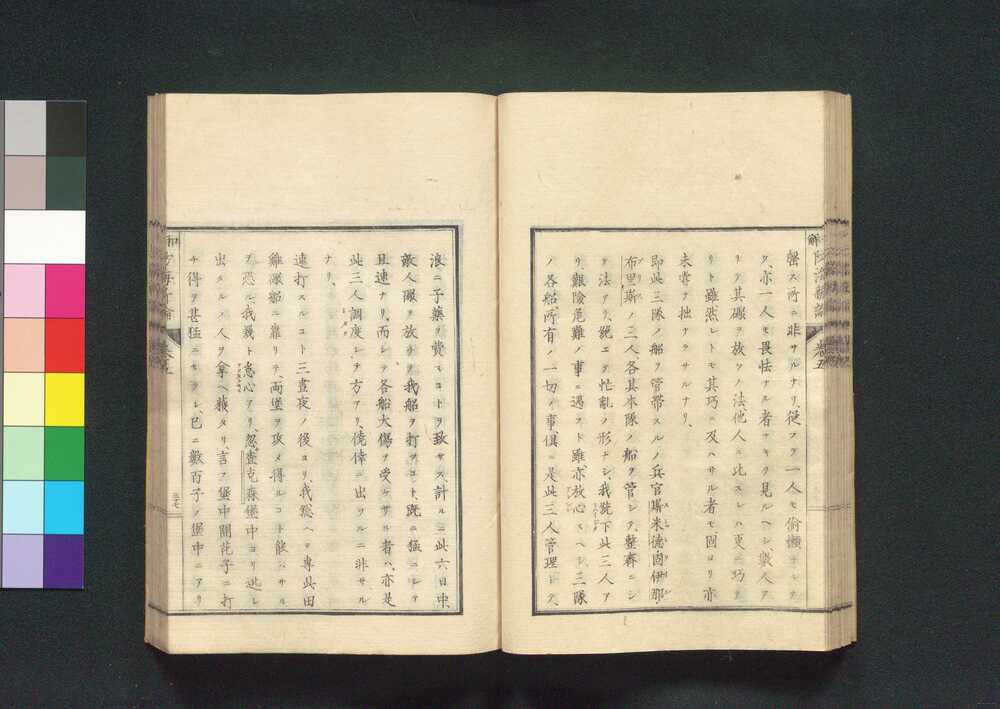 盤ス所ニ非サルナリ、従フテ一人モ偷懶ナシテ
ク、亦一人モ畏怯ナル者ナキヲ見ルヘシ、敵人ア
リテ其礮ヲ放ツノ法、他人ニ比スレハ更ニ巧ナ
リト雖、然レトモ其巧ニ及ハサル者モ固ヨリ亦
未嘗テ拙クアラサルナリ、
即此三隊ノ船ヲ管帯スルノ兵官
布里斯ノ二人各其本隊ノ船ヲ管シテ、整斉ニシ
テ法アリ、絶エテ忙乱ノ形ナシ、我號下此三人ア
リ、艱険危難ノ事ニ遇フト雖、亦放心スヘシ、三隊
ノ各船所有ノ一切ノ事、俱ニ是此三人管理シテ、
浪ニ子薬ヲ費スコトヲ致サス、計ルニ此六日中、
敵人礮ヲ放ツテ我船ヲ打ツコト、既ニ猛ニシテ
且連ナリ、而シテ各船大傷ヲ受ケサル者ハ、亦是
此三人調度シテ方アリ、僥倖ニ出ツルニ非サル
ナリ、
連打スルコト二三昼夜ノ後ヨリ、我
雖礮船ニ靠リテ、両堡ヲ攻メ得ルコト能ハサル
ヲ恐ル、我幾ト怠心アリ、忽査克森堡中ヨリ逃レ
出ルノ人ヲ拿ヘ獲タリ、言フ堡中開花子ニ打
チ得テ甚猛ニセラレ、已ニ数百子ノ堡中ニアリ